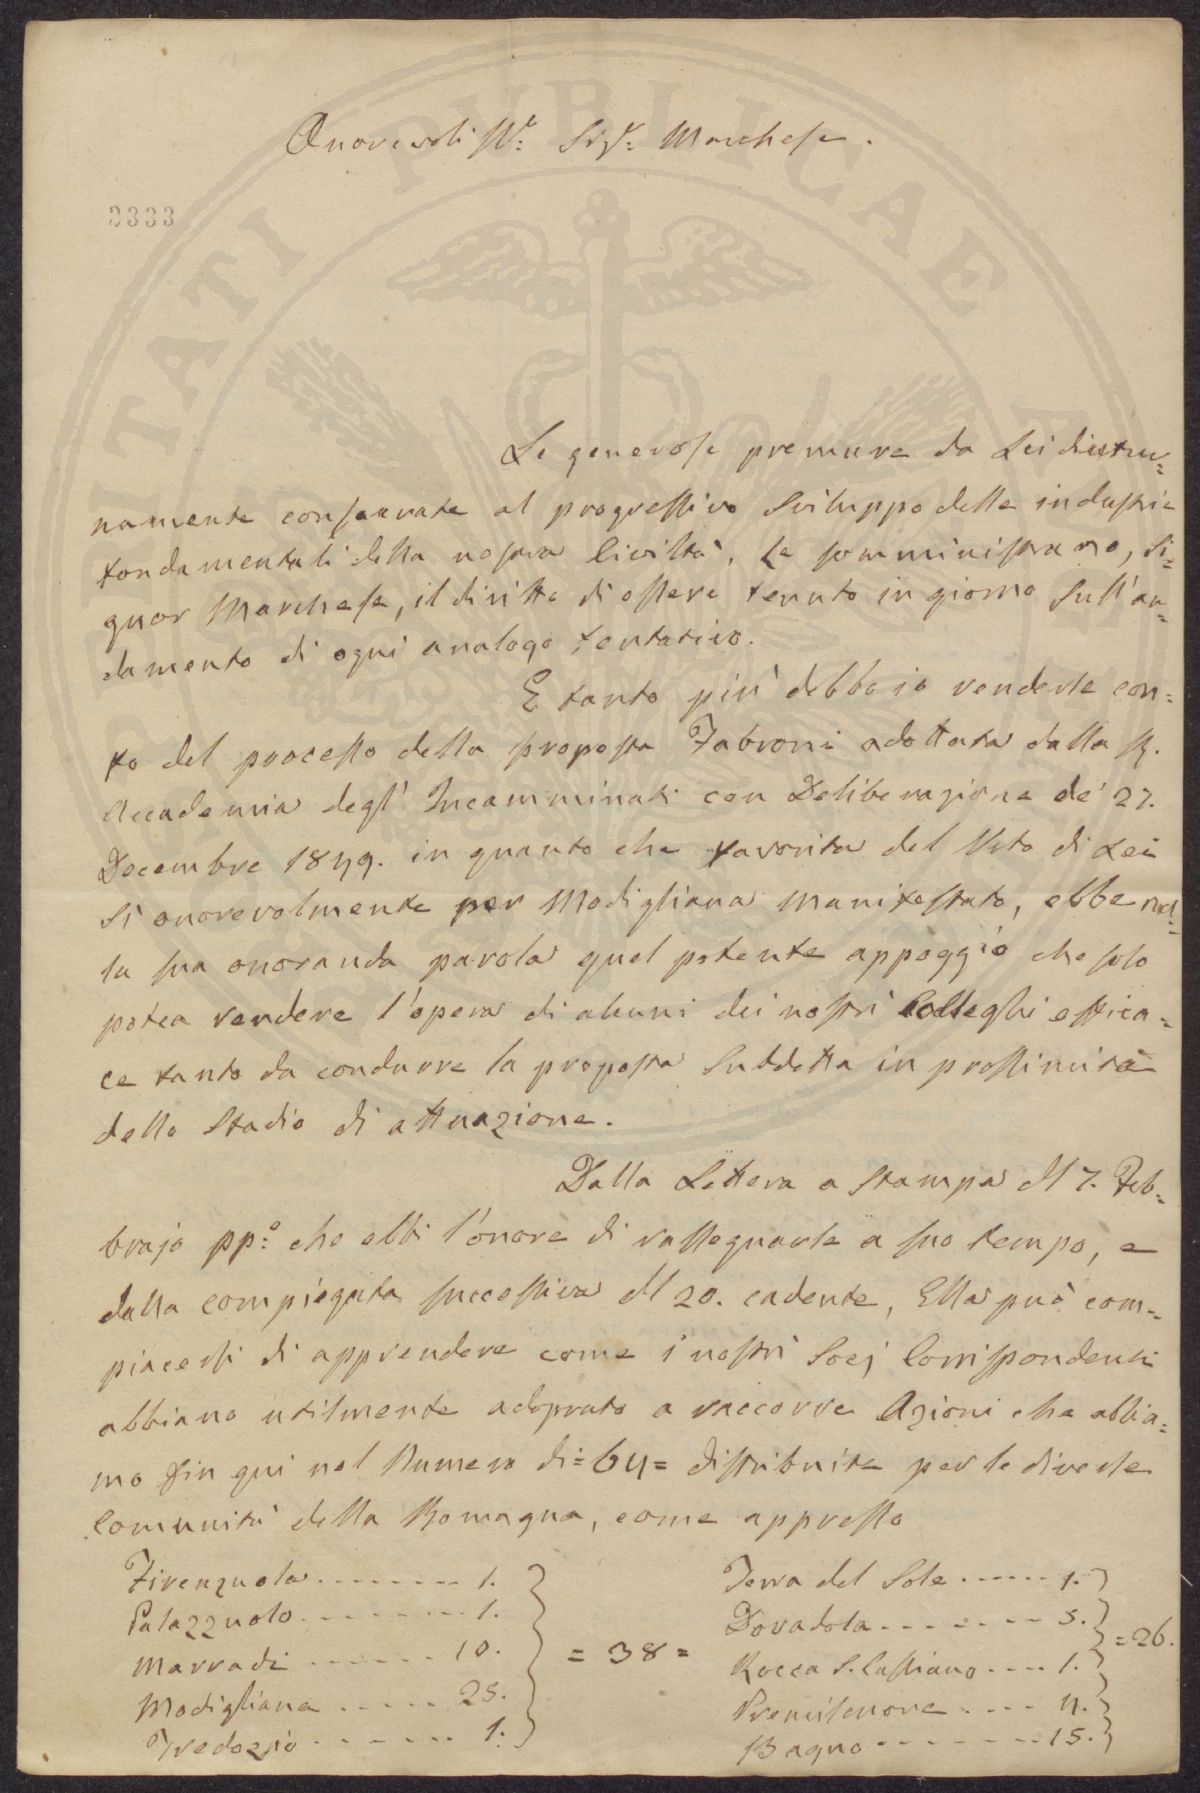 Onorevoliss.e Sig.r Marchese.
3333
PVBLICAE
Le generose premure da Lei diutur=
namente consacrate al progressivo sviluppo delle industrie
fondamentali della nostra Civiltà, Le somministrano, Si=
gnor Marchese, il diritto di essere tenuto in giorno sull'an=
damento di ogni analogo tentativo.
E tanto più debbo io renderle con=
to del processo della proposta Fabroni adottata dalla R.
Accademia degl'Incamminati con Deliberazione de' 27.
Decembre 1849. in quanto che favorita del Voto di Lei
sì onorevolmente per Modigliana manifestato, ebbe nel=
la sua onoranda parola quel potente appoggio che solo
potea rendere l'opera di alcuni dei nostri Colleghi effica=
ce tanto da condurre la proposta suddetta in prossimità
dello Stadio di attuazione.
Dalla Lettera a stampa del 7. Feb=
brajo pp.o che ebbi l'onore di rassegnarle a suo tempo, e
dalla compiegata successiva del 20. cadente, Ella può com=
piacersi di apprendere come i nostri Socj Corrispondenti
abbiano utilmente adoprato a raccorre Azioni che abbia=
mo fin qui nel Numero di =64= distribuite per le diverse
Comunità della Romagna, come appresso
Firenzuola ------- 1.
Palazzuolo ------- 1.
Marradi ------ 10.
Modigliana ----- 25.
Tredozio ------ 1.
= 38 =
Terra del Sole ----- 1.
Dovadola ------- 5.
Rocca S. Cassiano ---- 1.
Premilcuore ---- 4.
Bagno ------- 15.
= 26.